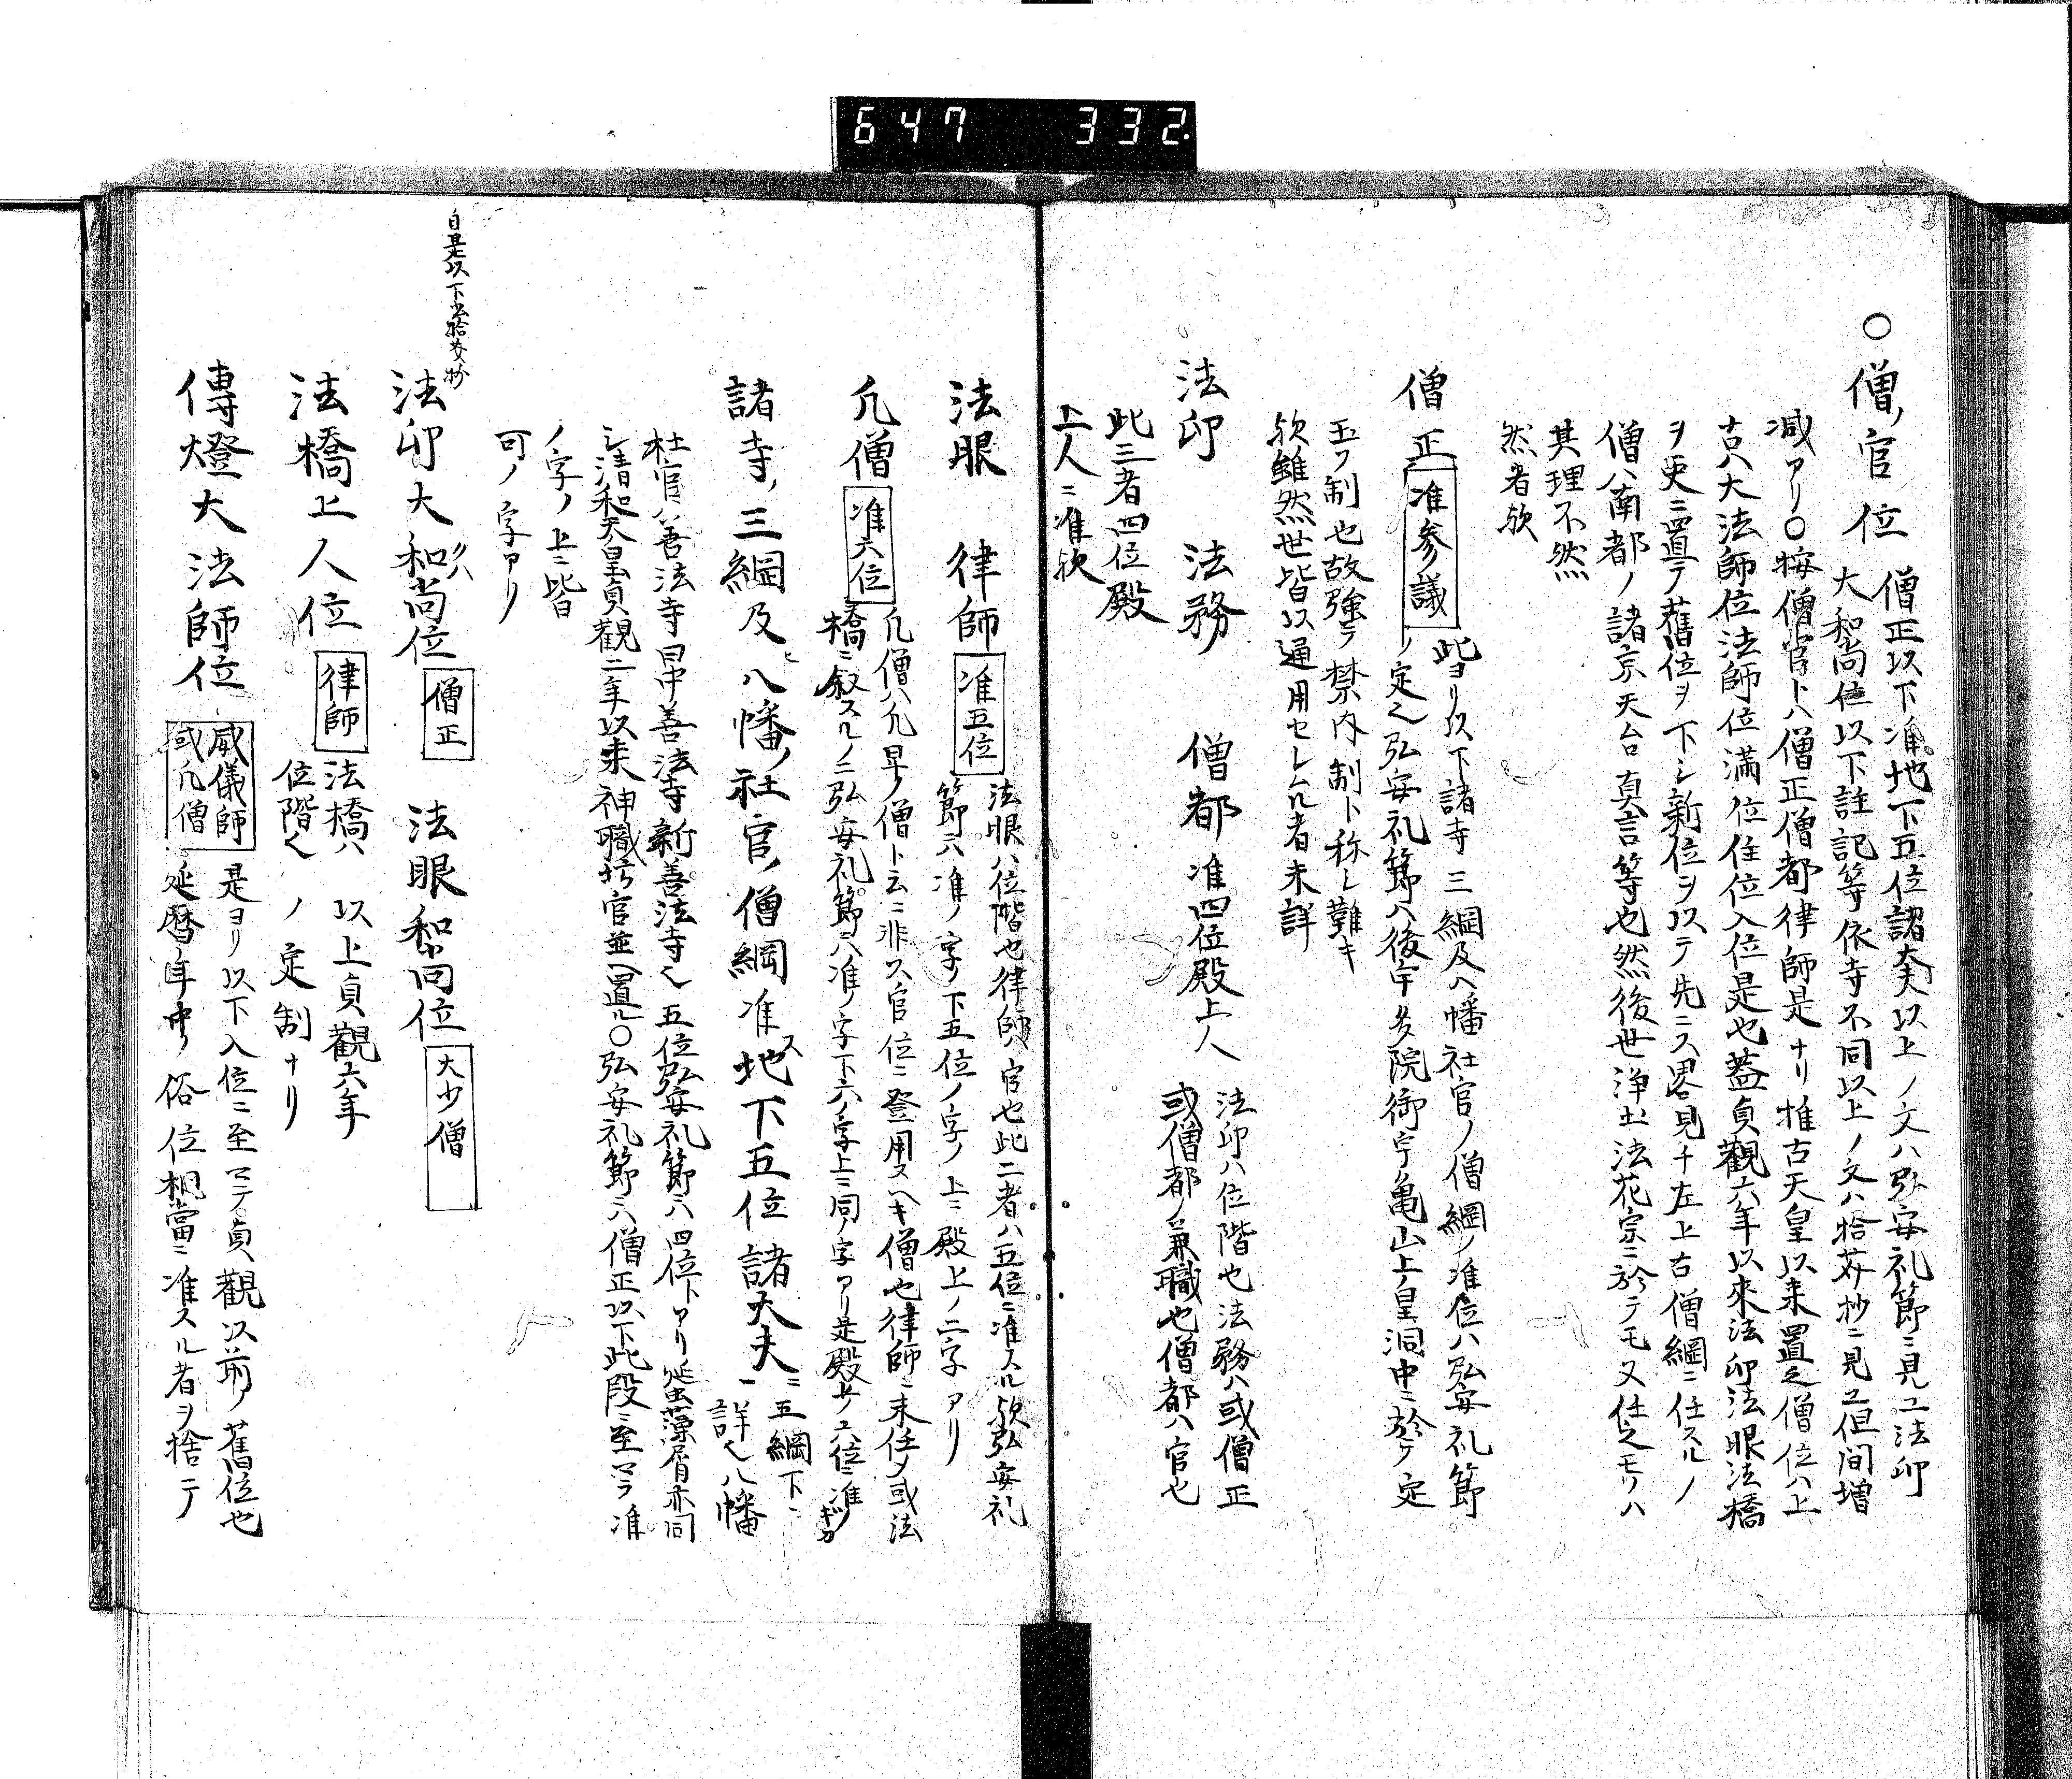 647 332.
○僧ノ官位
僧正以下准地下五位諸大夫以上ノ文ハ弘安礼節ニ見ユ法印
大和尚位以下註記等依寺不同以上ノ文ハ拾芥抄ニ見ユ但間増
減アリ○按僧官トハ僧正僧都律師是ナリ推古天皇以来置之僧位ハ上
古ハ大法師位法師位満位住位入位是也蓋貞觀六年以來法印法眼法橋
ヲ更ニ置テ舊位ヲ下シ新位ヲ以テ先ニス畧見チ左上古僧綱ニ任スルノ
僧ハ南都ノ諸京天台真言等也然後世浄土法花宗ニ於テモ又任之モノハ
其理不然
然者欤
僧正
准参議
此ヨリ以下諸寺三綱及八幡社官ノ僧綱ノ准位ハ弘安礼節
ノ定也弘安礼節ハ後宇多院御宇亀山上ノ皇洞中ニ於テ定
玉フ制也故強テ禁内ノ制ト称シ難キ
欤雖然世皆以通用セシムル者未詳
法印 法務 僧都准四位殿上人
法印ハ位階也法務ハ或僧正
或僧都ノ兼職也僧都ハ官也
此三者四位殿
上人ニ准欤
法眼 律師
准五位
法眼ハ位階也律師ハ官也此二者ハ五位ニ准スル欤弘安礼
節ニハ准ノ字ノ下五位ノ字ノ上ニ殿上ノ二字アリ
凡僧
准六位
凡僧ハ凡早ノ僧ト云ニ非ス官位ニ登用スヘキ僧也律師ニ未任タ或法
橋ニ叙スルノニ弘安礼節ニハ准ノ字下六ノ字上ニ同ノ字アリ是殿上ノ六位ニ准
諸寺ノ三綱及ヒ八幡ノ社官ノ僧綱准ス地下五位諸大夫ニ
五綱下ニ
詳也八幡
社官ハ善法寺田中善法寺新善法寺也五位弘安礼節ニハ四位トアリ延虫藻屑亦同
シ清和天皇貞觀二年以来神職坊官並ヘ置ル○弘安礼節ニハ僧正以下此段ニ至マテ准
ノ字ノ上ニ皆
可ノ字アリ
自是以下出拾芥抄
法印大和尚位
僧正
法眼和尚位
大少僧
法橋上人位
律師
法橋ハ
位階也
以上貞觀六年
ノ定制ナリ
傳燈大法師位
威儀師
或凡僧
是ヨリ以下入位ニ至マテ貞觀以前ノ舊位也
延暦ノ年中ノ俗位相當ニ准スル者ヲ捨テ